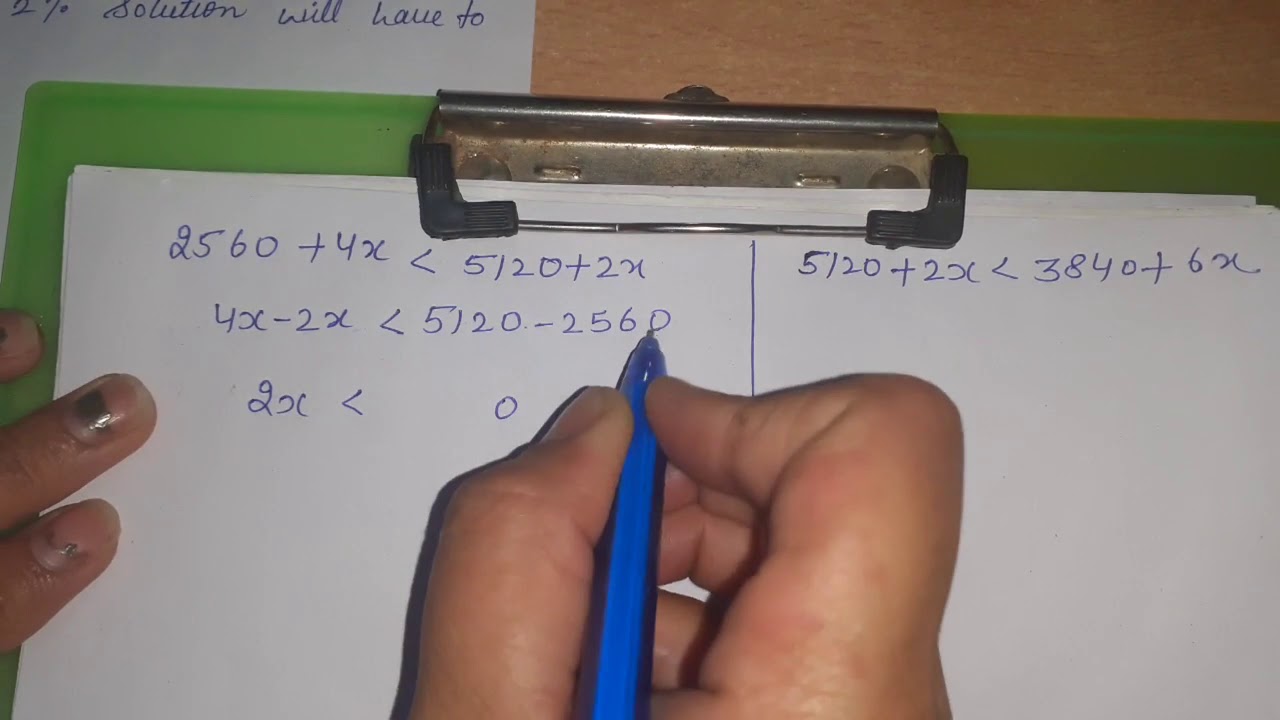 2% Solution will have to
2560 + 4x < 5120 + 2x
4x - 2x < 5120 - 2560
2x < 0
5120 + 2x < 3840 + 6x